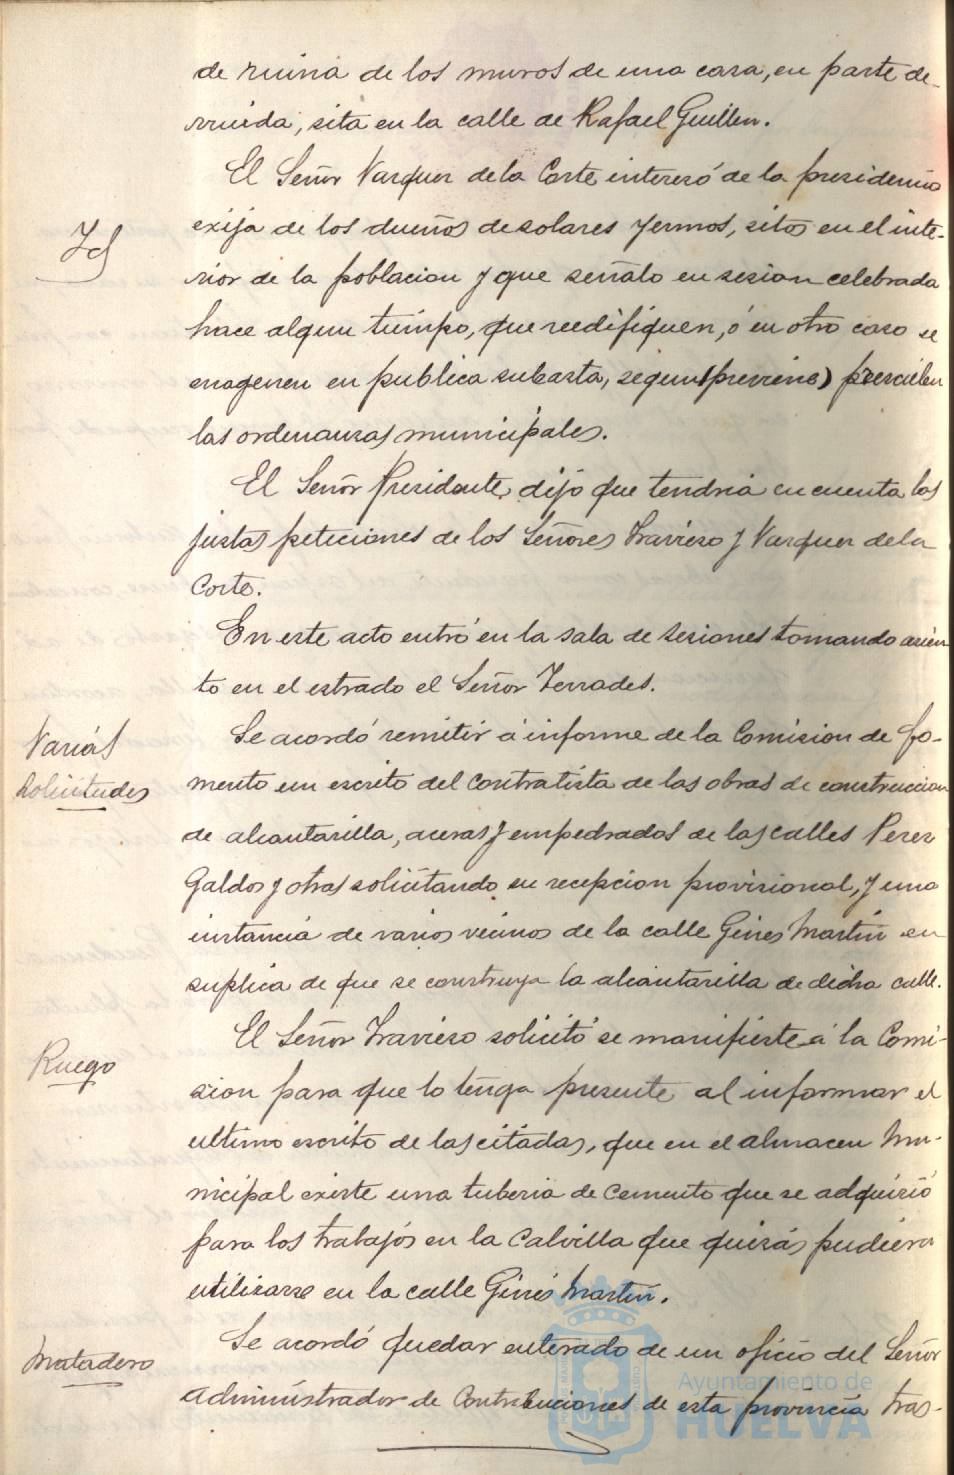 de ruina de los muros de una casa, en parte de-
rruida, sita en la calle de Rafael Guillen.
El Señor Vazquez de la Corte interesó de la presidencia
Id
exija de los dueños de solares yermos, sitos en el inte-
rior de la poblacion y que señalo en sesion celebrada
hace algun tiempo, que reedifiquen, ó en otro caso se
enagenen en publica subasta, segun (previene) prescriben
las ordenanzas municipales.
El Señor Presidente dijo que tendria en cuenta las
justas peticiones de los Señores Travieso y Vazquez de la
Corte.
En este acto entró en la sala de sesiones tomando asien-
to en el estrado el Señor Terrades.
Varias
solicitudes
Se acordó remitir á informe de la Comision de fo-
mento un escrito del contratista de las obras de construccion
de alcantarilla, aceras y empedrados de las calles Perez
Galdos y otras solicitando su recepcion provisional, y una
instancia de varios vecinos de la calle Gines Martin en
suplica de que se construya la alcantarilla de dicha calle.
Ruego
El Señor Travieso solicitó se manifieste á la Comi-
sion para que lo tenga presente al informar el
ultimo escrito de las citadas, que en el almacen Mu-
nicipal existe una tuberia de cemento que se adquirió
para los trabajos en la Calvilla que quizás pudiera
utilizarse en la calle Ginés Martin.
Matadero
Se acordó quedar enterado de un oficio del Señor
Administrador de Contribuciones de esta provincia tras-
Ayuntamiento de
HUELVA